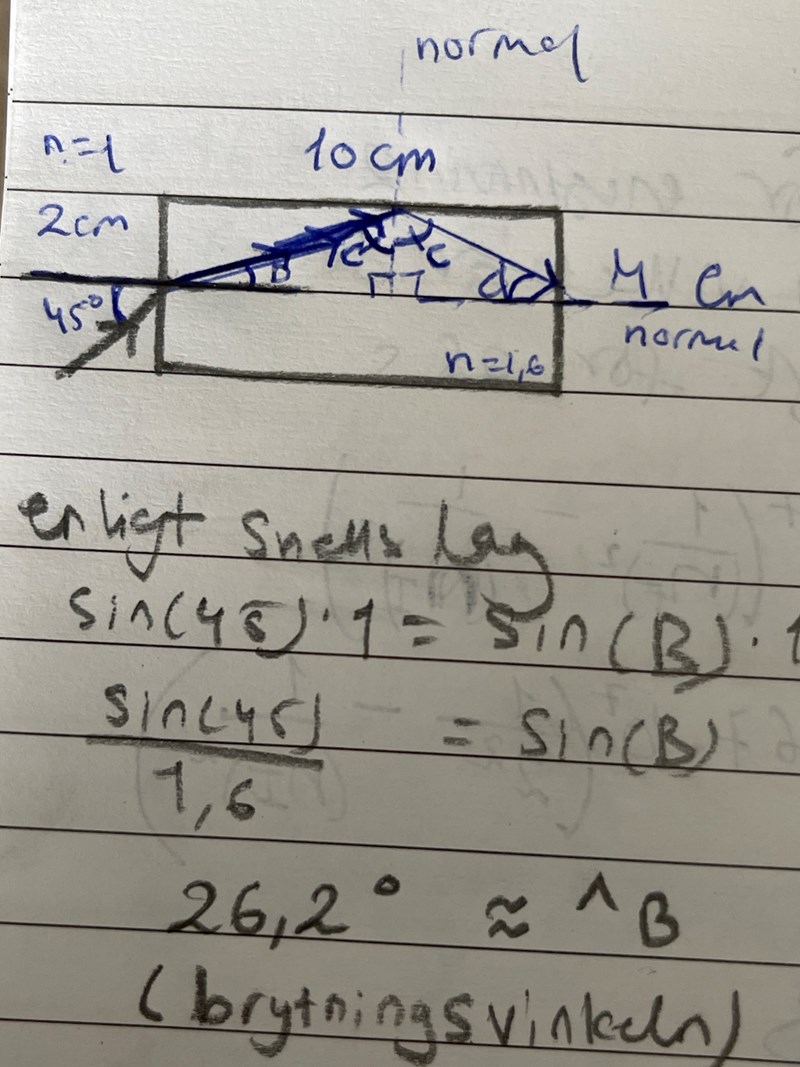 normal
n=1
10 cm
2cm
B
c
c
d
4 cm
45°
normal
n=1,6
enligt Snells lag
sin(45)·1 = sin(B)·1
sin(45)
= sin(B)
1,6
26,2° ≈ ^B
(brytningsvinkeln)